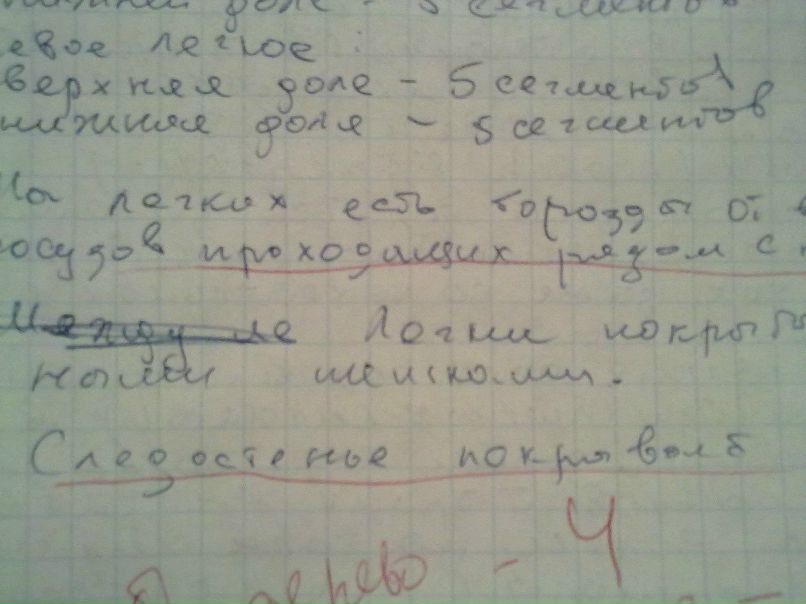 доле - 5 сегментов
евое легкое:
верхняя доле - 5 сегментов
нижняя доля - 5 сегментов
На легких есть борозды от в
осудов проходящих рядом с
Между ле Логни покрыты
ными
Следостенье покрывают
дерево - 4